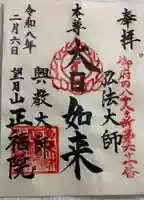 奉拝
御府内八十八ヶ所第六十一番
弘法大師
本尊
大日如来
興教大師
令和八年
二月六日
望月山
正福院